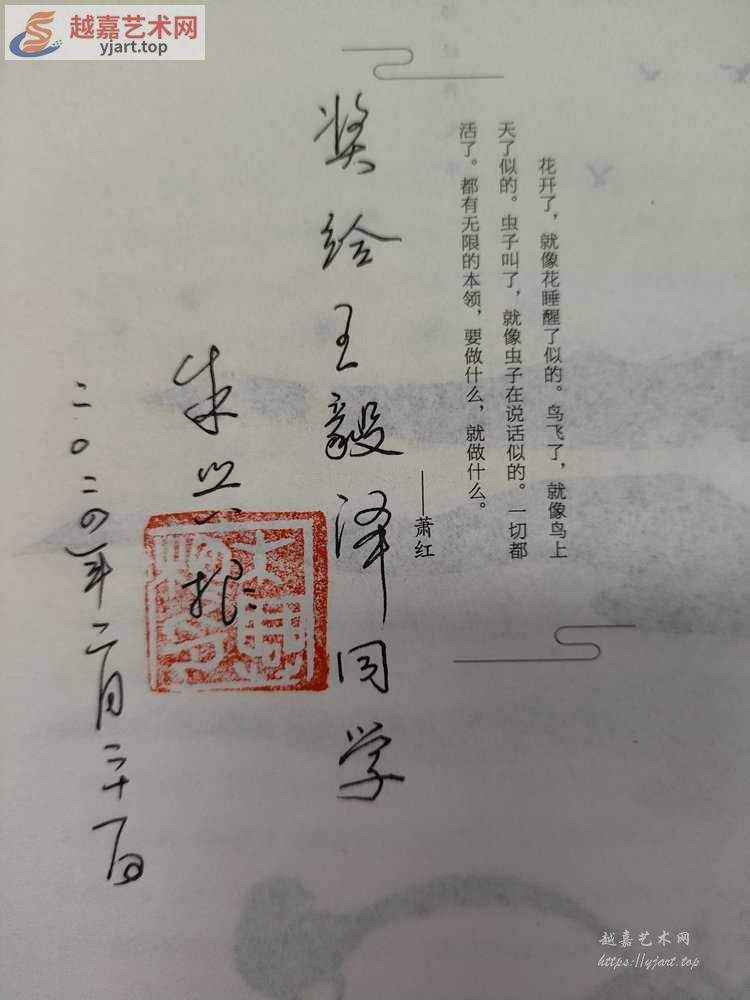 越嘉艺术网
yjart.top
花开了，就像花睡醒了似的。鸟飞了，就像鸟上
天了似的。虫子叫了，就像虫子在说话似的。一切都
活了。都有无限的本领，要做什么，就做什么。
——萧红
奖给王毅泽同学
朱兴根
二〇二四年二月二十一日
越嘉艺术网
https://yjart.top